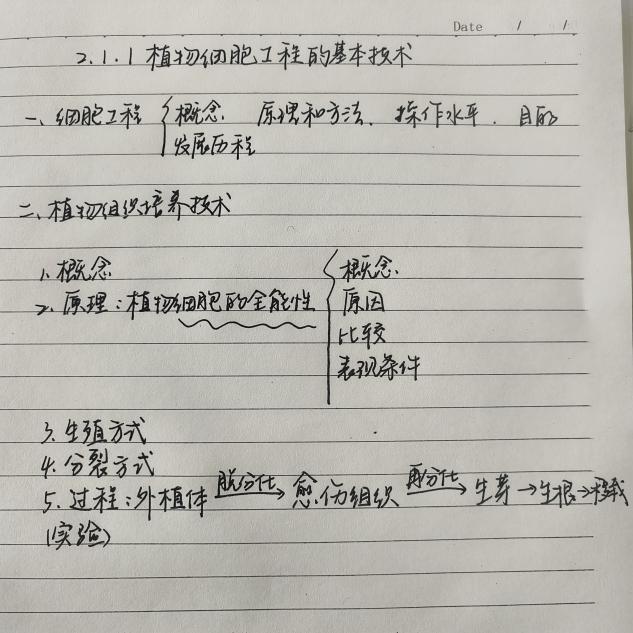 Date / /
2.1.1 植物细胞工程的基本技术
一、细胞工程 { 概念. 原理和方法、操作水平. 目的
发展历程
二、植物组织培养技术
1. 概念
2. 原理：植物细胞的全能性 { 概念.
原因
比较
表现条件
3. 生殖方式
4. 分裂方式
5. 过程：外植体 脱分化→ 愈伤组织 再分化→ 生芽→生根→移栽
(实验)